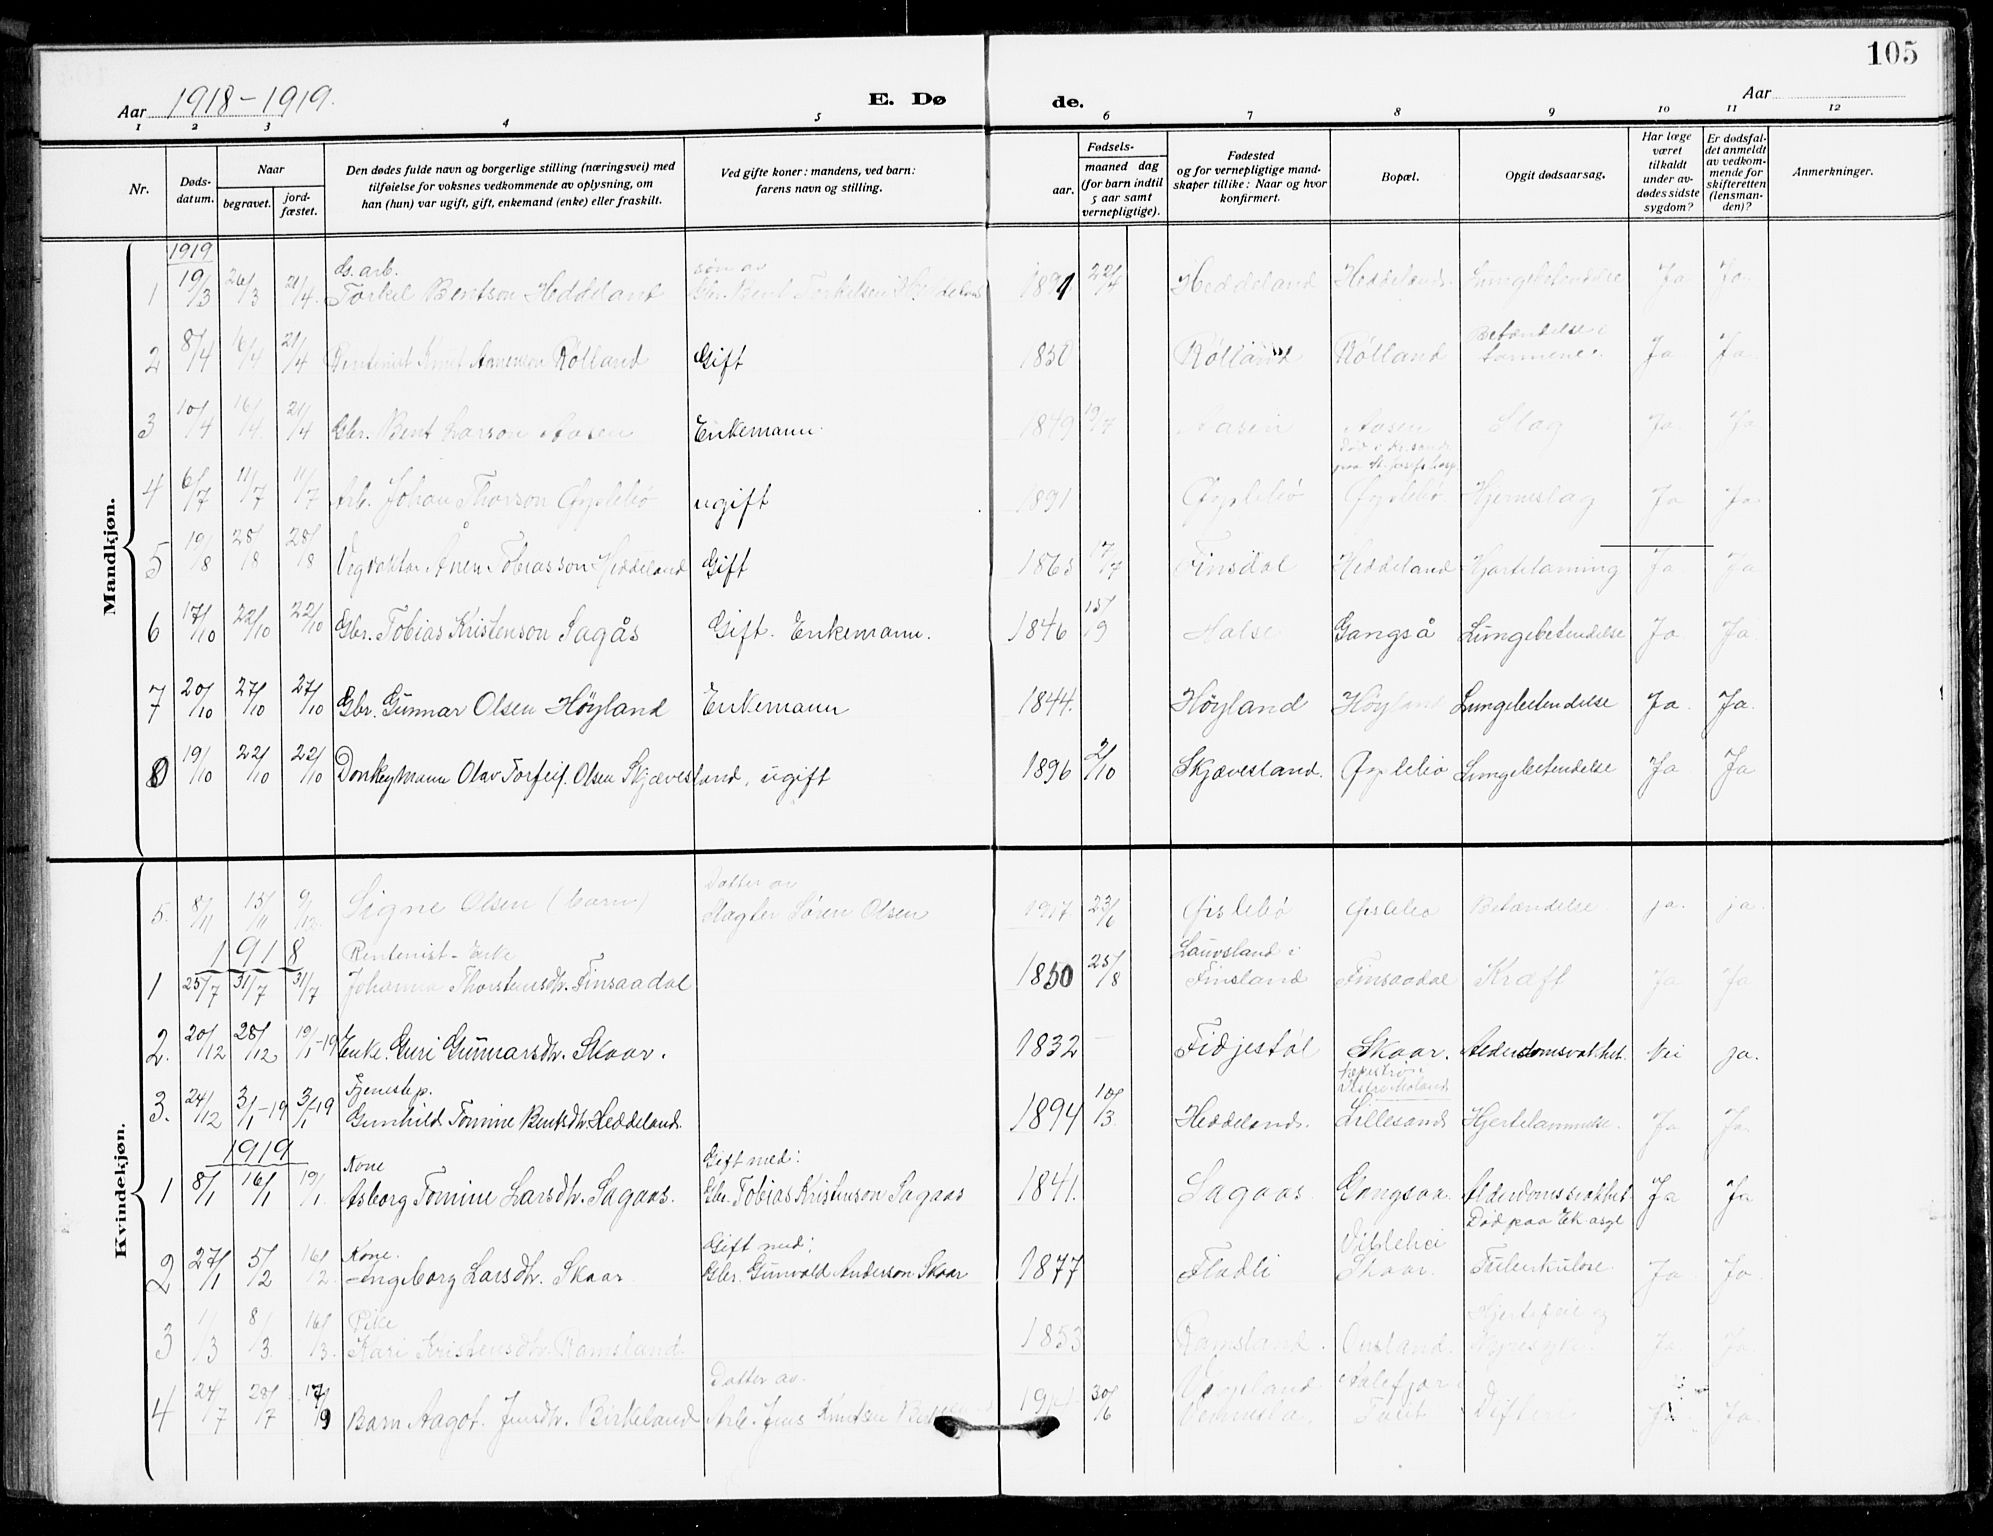 105
Aar 1918-1919.
E. Dø
de.
Aar
1 2 3 4 5 6 7 8 9 10 11 12
Nr.
Døds-
datum.
Naar
begravet.
jord-
fæstet.
Den dødes fulde navn og borgerlige stilling (næringsvei) med
tilføielse for voksnes vedkommende av oplysning, om
han (hun) var ugift, gift, enkemand (enke) eller fraskilt.
Ved gifte koner: mandens, ved barn:
farens navn og stilling.
Fødsels-
aar.
maaned dag
(for barn indtil
5 aar samt
vernepligtige).
Fødested
og for vernepligtige mand-
skaper tillike: Naar og hvor
konfirmert.
Bopæl.
Opgit dødsaarsag.
Har læge
været
tilkaldt
under av-
dødes sidste
sygdom?
Er dødsfal-
det anmeldt
av vedkom-
mende for
skifteretten
(lensman-
den)?
Anmerkninger.
Mandkjøn.
1919
ds. arb. søn av
1 19/3 26/3 21/4 Torkel Bentson Heddeland Gbr. Bent Torkelsen Heddeland 22/4 Heddeland Heddeland Lungebetendelse Ja Ja
Betændelse i
2 8/4 16/4 21/4 Rentenist Knut Rølland Gift 1850 Rølland Rølland tarmene Ja Ja
3 10/4 16/4 21/4 Gbr. Bent Larson Aasen Enkemann. 1849 19/7 Aasen Aasen Slag Ja Ja
4 6/7 11/7 11/7 Arb. Johan Thorson Øyslebø ugift 1891 Øyslebø Øyslebø Hjerneslag Ja Ja
5 19/8 28/8 28/8 Vegvokter Ånen Tobiasson Heddeland Gift 1865 17/7 Finsdal Heddeland Hjertelamning Ja Ja
6 17/10 22/10 22/10 Gbr. Tobias Kristenson Sagås Gift. Enkemann. 1846 15/9 Halse Gangså Lungebetendelse Ja Ja
7 20/10 27/10 27/10 Gbr. Gunnar Olsen Høyland Enkemann 1844. Høyland Høyland Lungebetendelse Ja Ja
8 19/10 22/10 22/10 Donkeymann Olav Torfeif. Olsen Skjævesland, ugift 1896 2/10 Skjævesland. Øyslebø Lungebetendelse Ja Ja
Kvindekjøn.
Datter av
5. 8/11 15/11 9/12 Signe Olsen (barn) Søren Olsen 1917 23/6 Øislebø Øislebø Betændelse ja. ja.
1918 Rentenist-Enke Lauvsland i
1 25/7 31/7 31/7 Johanna Thorstensdtr. Finsaadal 1850 25/8 Finsland Finsaadal Kræft Ja Ja
2. 20/12 28/12 19/1-19 Enke. Guri Gunnarsdtr. Skaar. 1832 Fidjestøl Skaar. Alderdomsvakhet. Nei ja.
Tjenestep.
3. 24/12 3/1-19 3/1-19 Gunhild Tomine Bentsdtr. Heddeland. 1894 10/3 Heddeland. Lillesand Hjertelammelse. Ja Ja
1919 Kone Gift med:
1 8/1 16/1 19/1 Asborg Tomine Larsdtr. Sagaas. Gbr. Tobias Kristenson Sagaas 1841. Sagaas Gangsaa. Alderdomssvakhet Ja Ja
Kone. Gift med: Død paa Ek asyl
2 27/1 5/2 16/2 Ingeborg Larsdtr. Skaar Gbr. Gunvald Anderson Skaar 1877 Fladli Skaar. Tuberkulose. Ja Ja
Pike Hjertefeil og
3 1/3 8/3 16/3 Kari Kristensdtr. Ramsland. 1853 Ramsland. Ousland. Nyresyke. Ja Ja
Datter av.
4 24/7 28/7 17/9 Barn Aagot. Jensdtr. Birkeland Arb. Jens Knutsen 30/6 Vennesla. Difteri Ja Ja